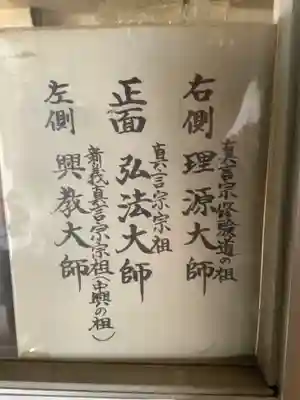 右側 理源大師
真言宗修験道の祖
正面 弘法大師
真言宗宗祖
左側 興教大師
新義真言宗宗祖(中興の祖)